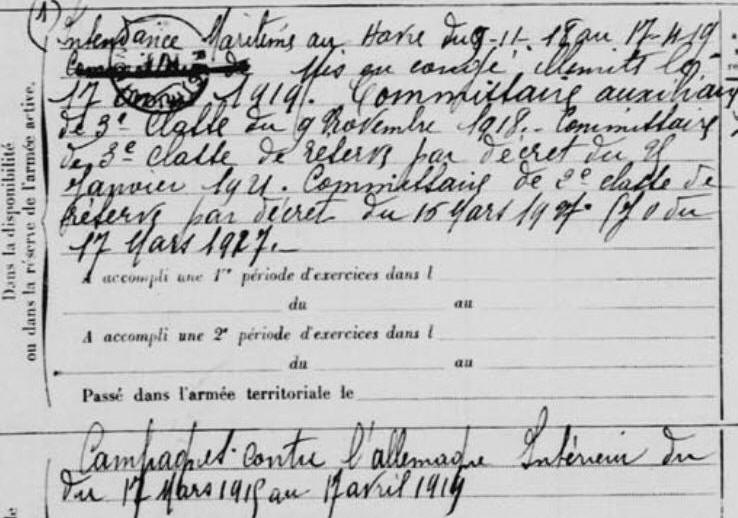 (1)
Intendance Maritime au Havre du 9-11-18 au 17-4-19
Mis en congé illimité le
17 avril 1919. Commissaire auxiliaire
de 3e Classe du 9 Novembre 1918. Commissaire
de 3e classe de réserve par décret du 25
Janvier 1921. Commissaire de 2e classe de
réserve par décret du 15 Mars 1927. (J O du
17 Mars 1927.
Dans la disponibilité
ou dans la réserve de l'armée active.
A accompli une 1re période d'exercices dans l
du au
A accompli une 2e période d'exercices dans l
du au
Passé dans l'armée territoriale le
Campagnes contre l'allemagne Intérieur du
du 17 Mars 1915 au 17 avril 1919